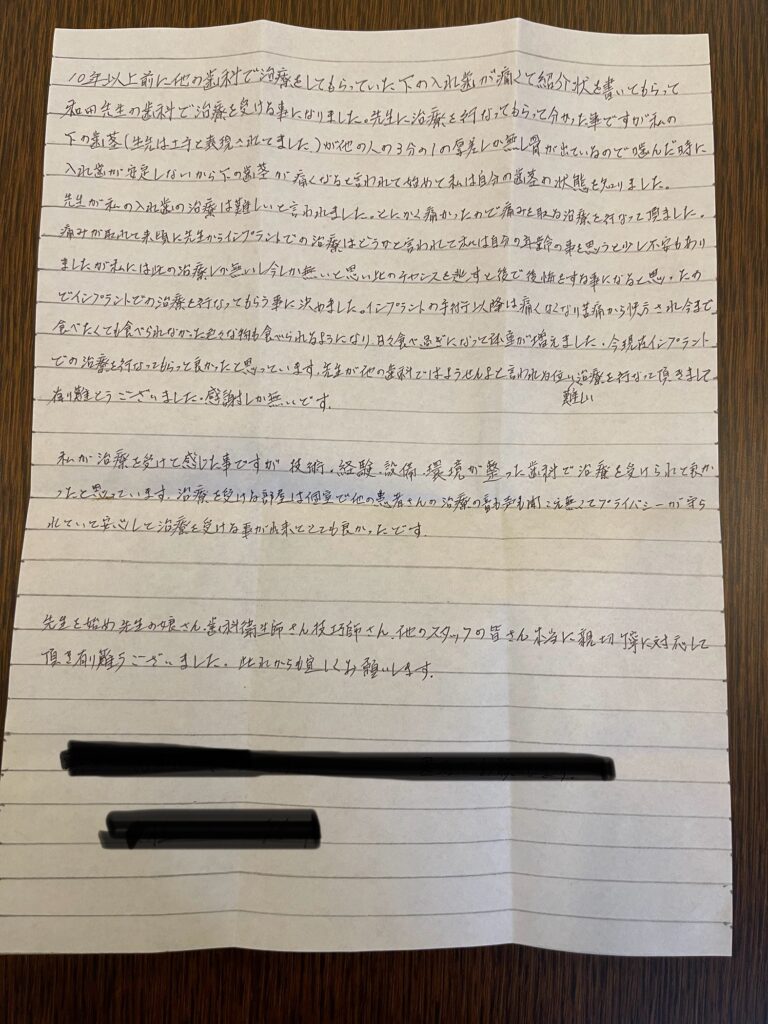 10年以上前に他の歯科で治療をしてもらっていた下の入れ歯が痛くて紹介状を書いてもらって
和田先生の歯科で治療を受ける事になりました。先生に治療を行なってもらって分かった事ですが私の
下の歯茎(先生は土手と表現されてました)が他の人の3分の1の厚差しか無し骨が出ているので噛んだ時に
入れ歯が安定しないから下の歯茎が痛くなると言われて始めて私は自分の歯茎の状態を知りました。
先生が私の入れ歯の治療は難しいと言われました。とにかく痛かったので痛みを取る治療を行なって頂ました。
痛みが取れて来頃に先生からインプラントでの治療はどうかと言われて私は自分の年齢の事を思うと少し不安もあり
ましたが私には此の治療しか無いし今しか無いと思い此のチャンスを逃すと後で後悔をする事になると思ったの
でインプラントでの治療を行なってもらう事に決めました。インプラントの手術以降は痛くなくなり苦痛から され今まで
食べたくても食べられなかった色々な物も食べられるようになり、日々食べ過ぎになって体重が増えました。今現在インプラント
での治療を行なってもらって良かったと思っています。先生が他の歯科ではようせんよと言われる位い治療を行なって頂きまして
難しい
有り難とうございました。感謝しか無いです。
私が治療を受けて感じた事ですが技術、経験、設備、環境が整った歯科で治療を受けられて良か
ったと思っています。治療を受ける部屋は個室で他の患者さんの治療の音も声も聞こえ無くてプライバシーが守ら
れていて安心して治療を受ける事が出来てとても良かったです。
先生を始め先生の娘さん、歯科衛生師さん、技巧師さん、他のスタッフの皆さん本当に親切 寧に対応して
頂き有り難うございました。此れからも宜しくお願いします。